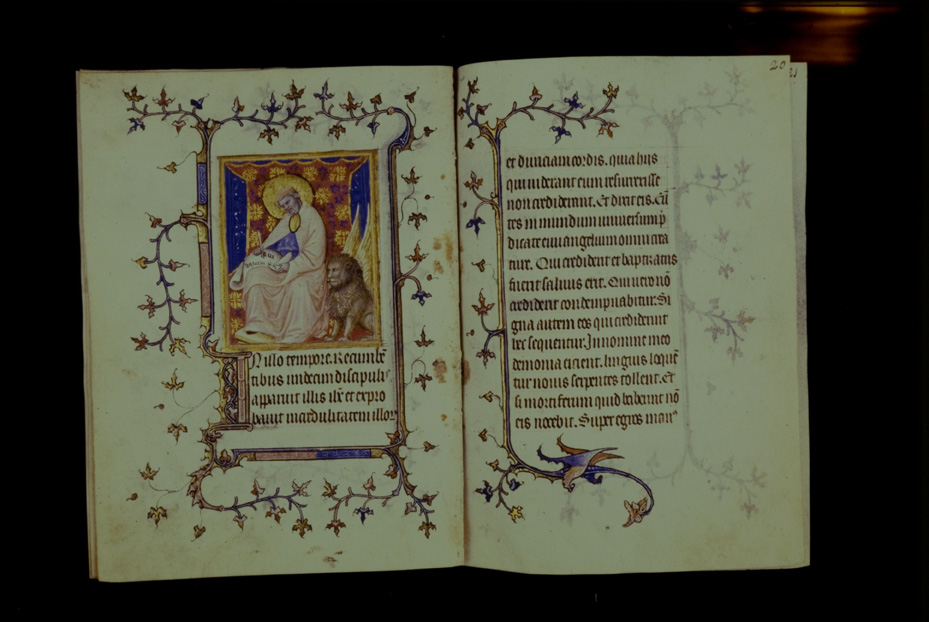 N illo tempore. Recumbēt
tibus undecim discipulis
apparuit illis ihc et expro
bauit incredulitatem illor
20
et duriciam cordis. quia hiis
qui uiderant eum resurrexisse
non crediderunt. Et dixit eis. Eū
tes in mundum uniuersum p
dicate euuangelium omni crea
ture. Qui crediderit et baptizatus
fuerit saluus erit. Qui uero nō
crediderit condempnabitur. Si
gna autem eos qui crediderint
hec sequentur. In nomine meo
demonia eicient. linguis loquē
tur nouis serpentes tollent. Et
si mortiferum quid biberint nō
eis nocebit. Super egros man